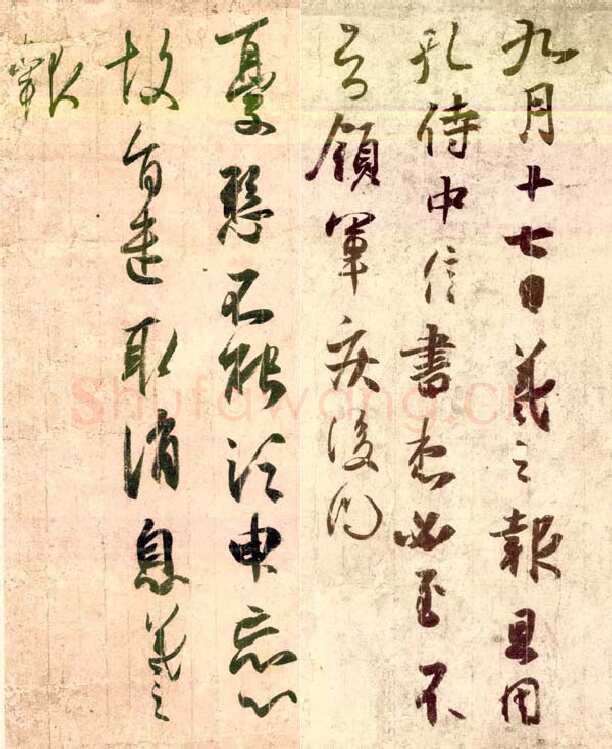 九月十七日羲之報且因
孔侍中信書想必至不
知領軍疾後問
憂懸不能須臾忘心
故旨遣取消息羲之
報
Shufawang.cn